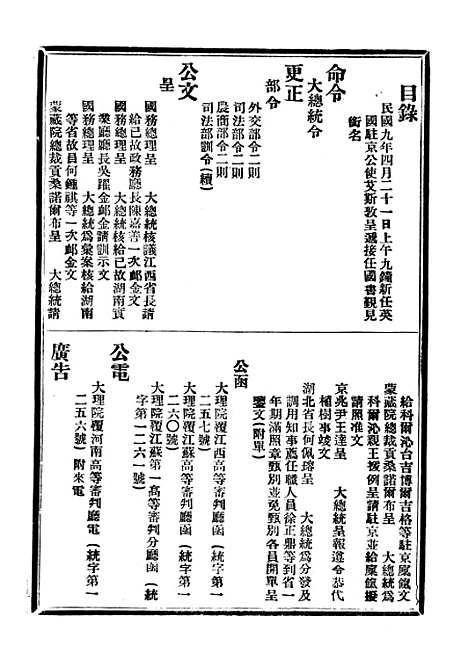 目錄
民國九年四月二十一日上午九鐘新任英
國駐京公使艾斯敦呈遞接任國書覲見
銜名
命令
大總統令
更正
部令
外交部令二則
司法部令二則
農商部令二則
司法部訓令（續）
公文
呈
國務總理呈　大總統核議江西省長請
給已故政務廳長陳嘉善一次卹金文
國務總理呈　大總統核給已故湖南實
業廳廳長吳躍金卹金請訓示文
國務總理呈　大總統爲彙案核給湖南
等省故員何鍾祺等一次卹金文
蒙藏院總裁貢桑諾爾布呈　大總統請
給科爾沁台吉博爾吉格等駐京廩餼文
蒙藏院總裁貢桑諾爾布呈　大總統爲
科爾沁親王援例呈請駐京並給廩餼擬
請照准文
京兆尹王達呈　大總統呈報遵令恭代
植樹事竣文
湖北省長何佩瑢呈　大總統爲分發及
調用知事薦任職人員徐正鼎等到省一
年期滿照章甄別並免甄別各員開單呈
鑒文（附單）
公函
大理院覆江西高等審判廳函（統字第一
二五七號）
大理院覆江蘇高等審判廳函（統字第一
二六〇號）
大理院覆江蘇第一高等審判分廳函（統
字第一二六一號）
公電
大理院覆河南高等審判廳電（統字第一
二五六號）附來電
廣告